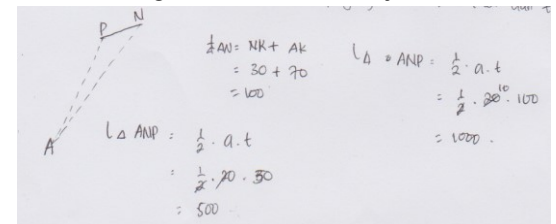 P N
A
½ AN = NK + AK
= 30 + 70
= 100
L△ ANP = ½ . a.t
= ½ . 20 . 50
= 500
L△ ANP = ½ . a.t
= ½ . 20 10 . 100
= 1000 .